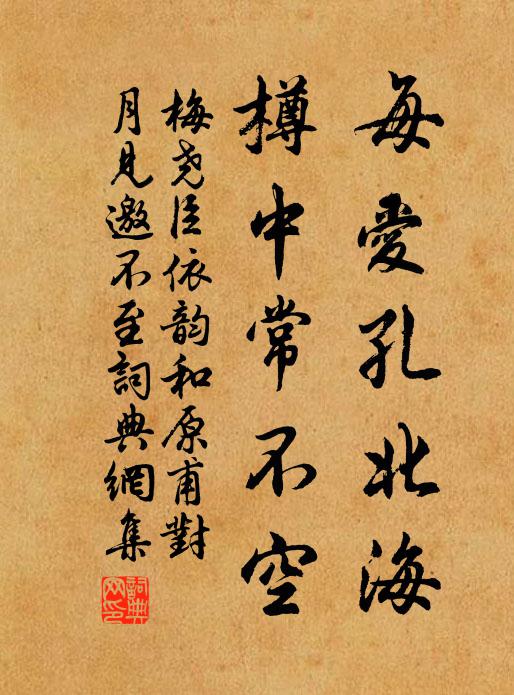 每愛孔北海
樽中常不空
梅堯臣依韵和原甫對
月見邀不至詞典網集
詞典
网印